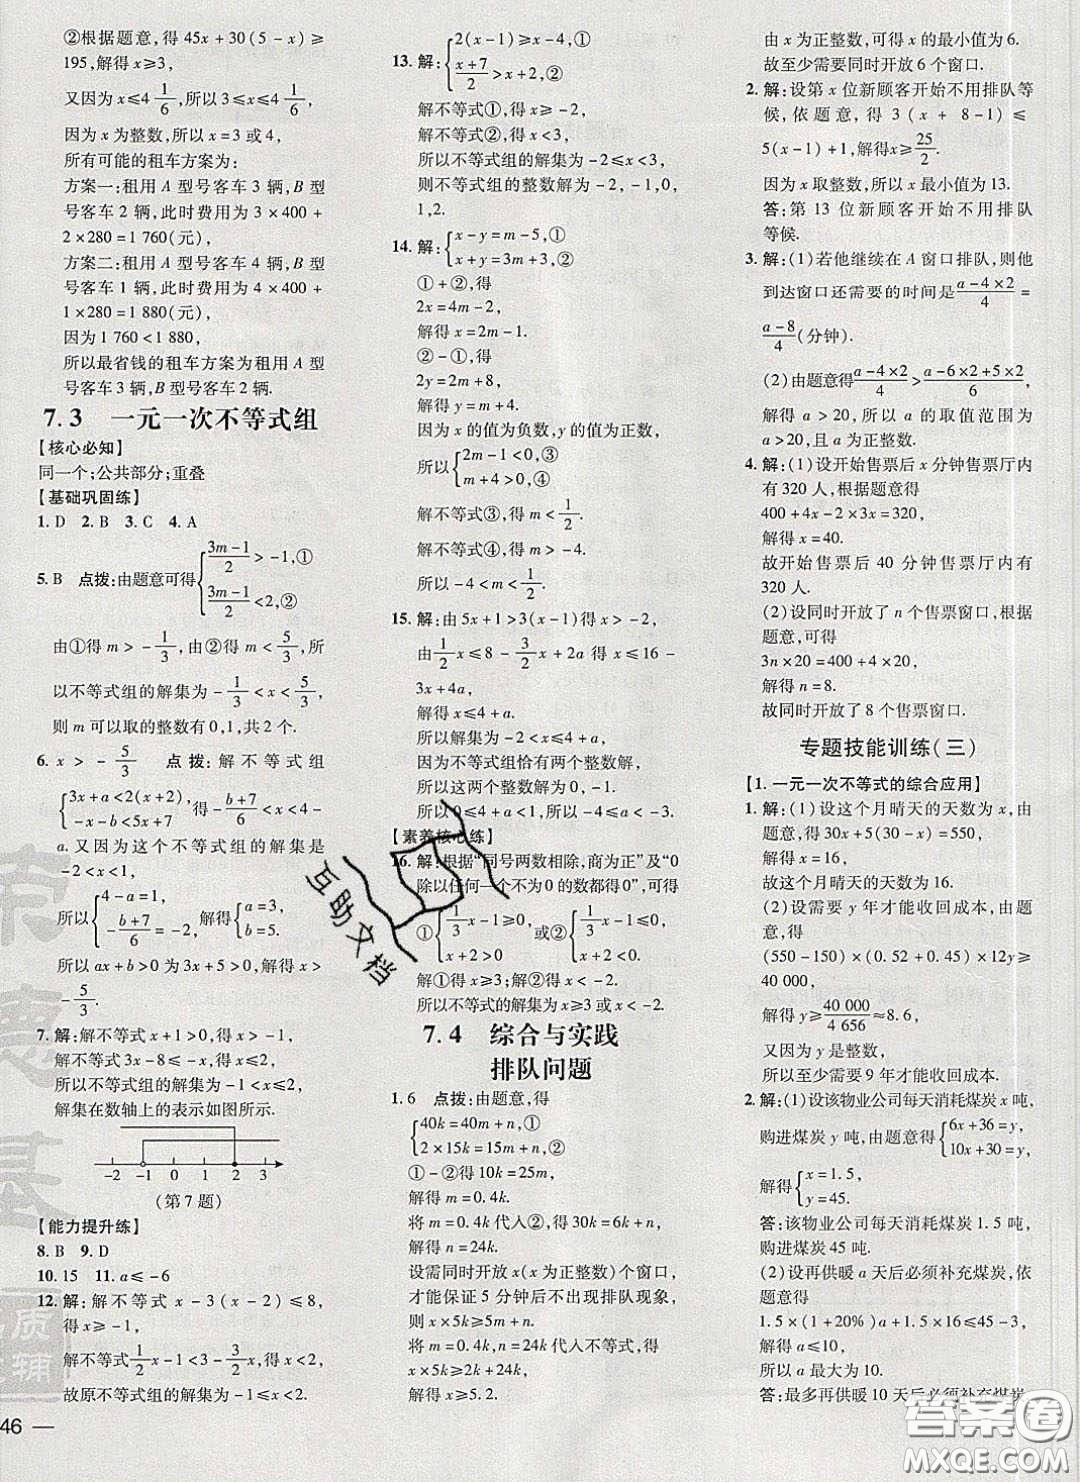 ②根据题意，得 45x + 30(5 - x) ≥
195，解得 x≥3，
又因为 x≤4 1/6，所以 3≤x≤4 1/6，
因为 x 为整数，所以 x = 3 或 4，
所有可能的租车方案为：
方案一：租用 A 型号客车 3 辆，B 型
号客车 2 辆，此时费用为 3 × 400 +
2 × 280 = 1 760(元)，
方案二：租用 A 型号客车 4 辆，B 型
号客车 1 辆，此时费用为 4 × 400 +
1 × 280 = 1 880(元)，
因为 1 760 < 1 880，
所以最省钱的租车方案为租用 A 型
号客车 3 辆，B 型号客车 2 辆.
7.3 一元一次不等式组
【核心必知】
同一个；公共部分；重叠
【基础巩固练】
1. D 2. B 3. C 4. A
5. B 点拨：由题意可得 { (3m - 1)/2 > -1，①
(3m - 1)/2 < 2，②
由①得 m > -1/3，由②得 m < 5/3，所
以不等式组的解集为 -1/3 < x < 5/3，
则 m 可以取的整数有 0，1，共 2 个.
6. x > -5/3 点拨：解不等式组
{ 3x + a < 2(x + 2)，
-x - b < 5x + 7， 得 -(b + 7)/6 < x < 4 -
a. 又因为这个不等式组的解集是
-2 < x < 1，
所以 { 4 - a = 1，
-(b + 7)/6 = -2， 解得 { a = 3，
b = 5.
所以 ax + b > 0 为 3x + 5 > 0，得 x >
-5/3.
7. 解：解不等式 x + 1 > 0，得 x > -1，
解不等式 3x - 8 ≤ -x，得 x≤2，
所以不等式组的解集为 -1 < x≤2，
解集在数轴上的表示如图所示.
-2 -1 0 1 2 3
(第 7 题)
【能力提升练】
8. B 9. D
10. 15 11. a≤ -6
12. 解：解不等式 x - 3(x - 2) ≤ 8，
得 x≥ -1，
解不等式 1/2 x - 1 < 3 - 3/2 x，得 x < 2，
故原不等式组的解集为 -1≤x < 2.
46
13. 解： { 2(x - 1) ≥x - 4，①
(x + 7)/2 > x + 2，②
解不等式①，得 x≥ -2，
解不等式②，得 x < 3，
所以不等式组的解集为 -2≤x < 3，
则不等式组的整数解为 -2，-1，0，
1，2.
14. 解： { x - y = m - 5，①
x + y = 3m + 3，②
① + ②，得
2x = 4m - 2，
解得 x = 2m - 1.
② - ①，得
2y = 2m + 8，
解得 y = m + 4.
因为 x 的值为负数，y 的值为正数，
所以 { 2m - 1 < 0，③
m + 4 > 0，④
解不等式③，得 m < 1/2.
解不等式④，得 m > -4.
所以 -4 < m < 1/2.
15. 解：由 5x + 1 > 3(x - 1) 得 x > -2，
由 1/2 x≤8 - 3/2 x + 2a 得 x≤16 -
3x + 4a，
解得 x≤4 + a，
所以解集为 -2 < x≤4 + a，
因为不等式组恰有两个整数解，
所以两个整数解为 -1，0，
所以 0≤4 + a < 1，解得 -4≤a < -3.
【素养核心练】
16. 解：根据“同号两数相除，商为正”及“0
除以任何一个不为 0 的数都得 0”，可得
① { 1/3 x - 1≥0，
x + 2 > 0， 或② { 1/3 x - 1≤0，
x + 2 < 0.
解①得 x≥3；解②得 x < -2.
所以不等式的解集为 x≥3 或 x < -2.
7.4 综合与实践
排队问题
1. 6 点拨：由题意，得
{ 40k = 40m + n，①
2 × 15k = 15m + n，②
① - ②得 10k = 25m，
解得 m = 0. 4k，
将 m = 0. 4k 代入②，得 30k = 6k + n，
解得 n = 24k，
设需同时开放 x(x 为正整数)个窗口，
才能保证 5 分钟后不出现排队现象，
由题意，得 x × 5k≥5m + n，
将 m = 0. 4k，n = 24k 代入不等式，得
x × 5k≥5 × 0. 4k + 24k，
解得 x≥5. 2，
由 x 为正整数，可得 x 的最小值为 6.
故至少需要同时开放 6 个窗口.
2. 解：设第 x 位新顾客开始不用排队等
候，依题意，得 3(x + 8 - 1) ≤
5(x - 1) + 1，解得 x≥25/2.
因为 x 取整数，所以 x 最小值为 13.
答：第 13 位新顾客开始不用排队
等候.
3. 解：(1) 若他继续在 A 窗口排队，则他
到达窗口还需要的时间是 (a - 4 × 2)/4 =
(a - 8)/4 (分钟).
(2) 由题意得 (a - 4 × 2)/4 > (a - 6 × 2 + 5 × 2)/6，
解得 a > 20，所以 a 的取值范围为
a > 20，且 a 为正整数.
4. 解：(1) 设开始售票后 x 分钟售票厅内
有 320 人，根据题意得
400 + 4x - 2 × 3x = 320，
解得 x = 40.
故开始售票后 40 分钟售票厅内有
320 人.
(2) 设同时开放了 n 个售票窗口，根据
题意，可得
3n × 20 = 400 + 4 × 20，
解得 n = 8.
故同时开放了 8 个售票窗口.
专题技能训练(三)
【1. 一元一次不等式的综合应用】
1. 解：(1) 设这个月晴天的天数为 x，由
题意得 30x + 5(30 - x) = 550，
解得 x = 16，
故这个月晴天的天数为 16.
(2) 设需要 y 年才能收回成本，由题
意，得
(550 - 150) × (0. 52 + 0. 45) × 12y≥
40 000，
解得 y≥ 40 000/4 656 ≈8. 6，
又因为 y 是整数，
所以至少需要 9 年才能收回成本.
2. 解：(1) 设该物业公司每天消耗煤炭 x 吨，
购进煤炭 y 吨，由题意得 { 6x + 36 = y，
10x + 30 = y，
解得 { x = 1. 5，
y = 45.
答：该物业公司每天消耗煤炭 1. 5 吨，
购进煤炭 45 吨.
(2) 设再供暖 a 天后必须补充煤炭，
由题意，得
1. 5 × (1 + 20%) a + 30≤45 + 3，
解得 a≤10.
所以 a 最大为 10.
答：最多再供暖 10 天后必须补充煤炭.
互助文档
答案圈
MXQE.COM